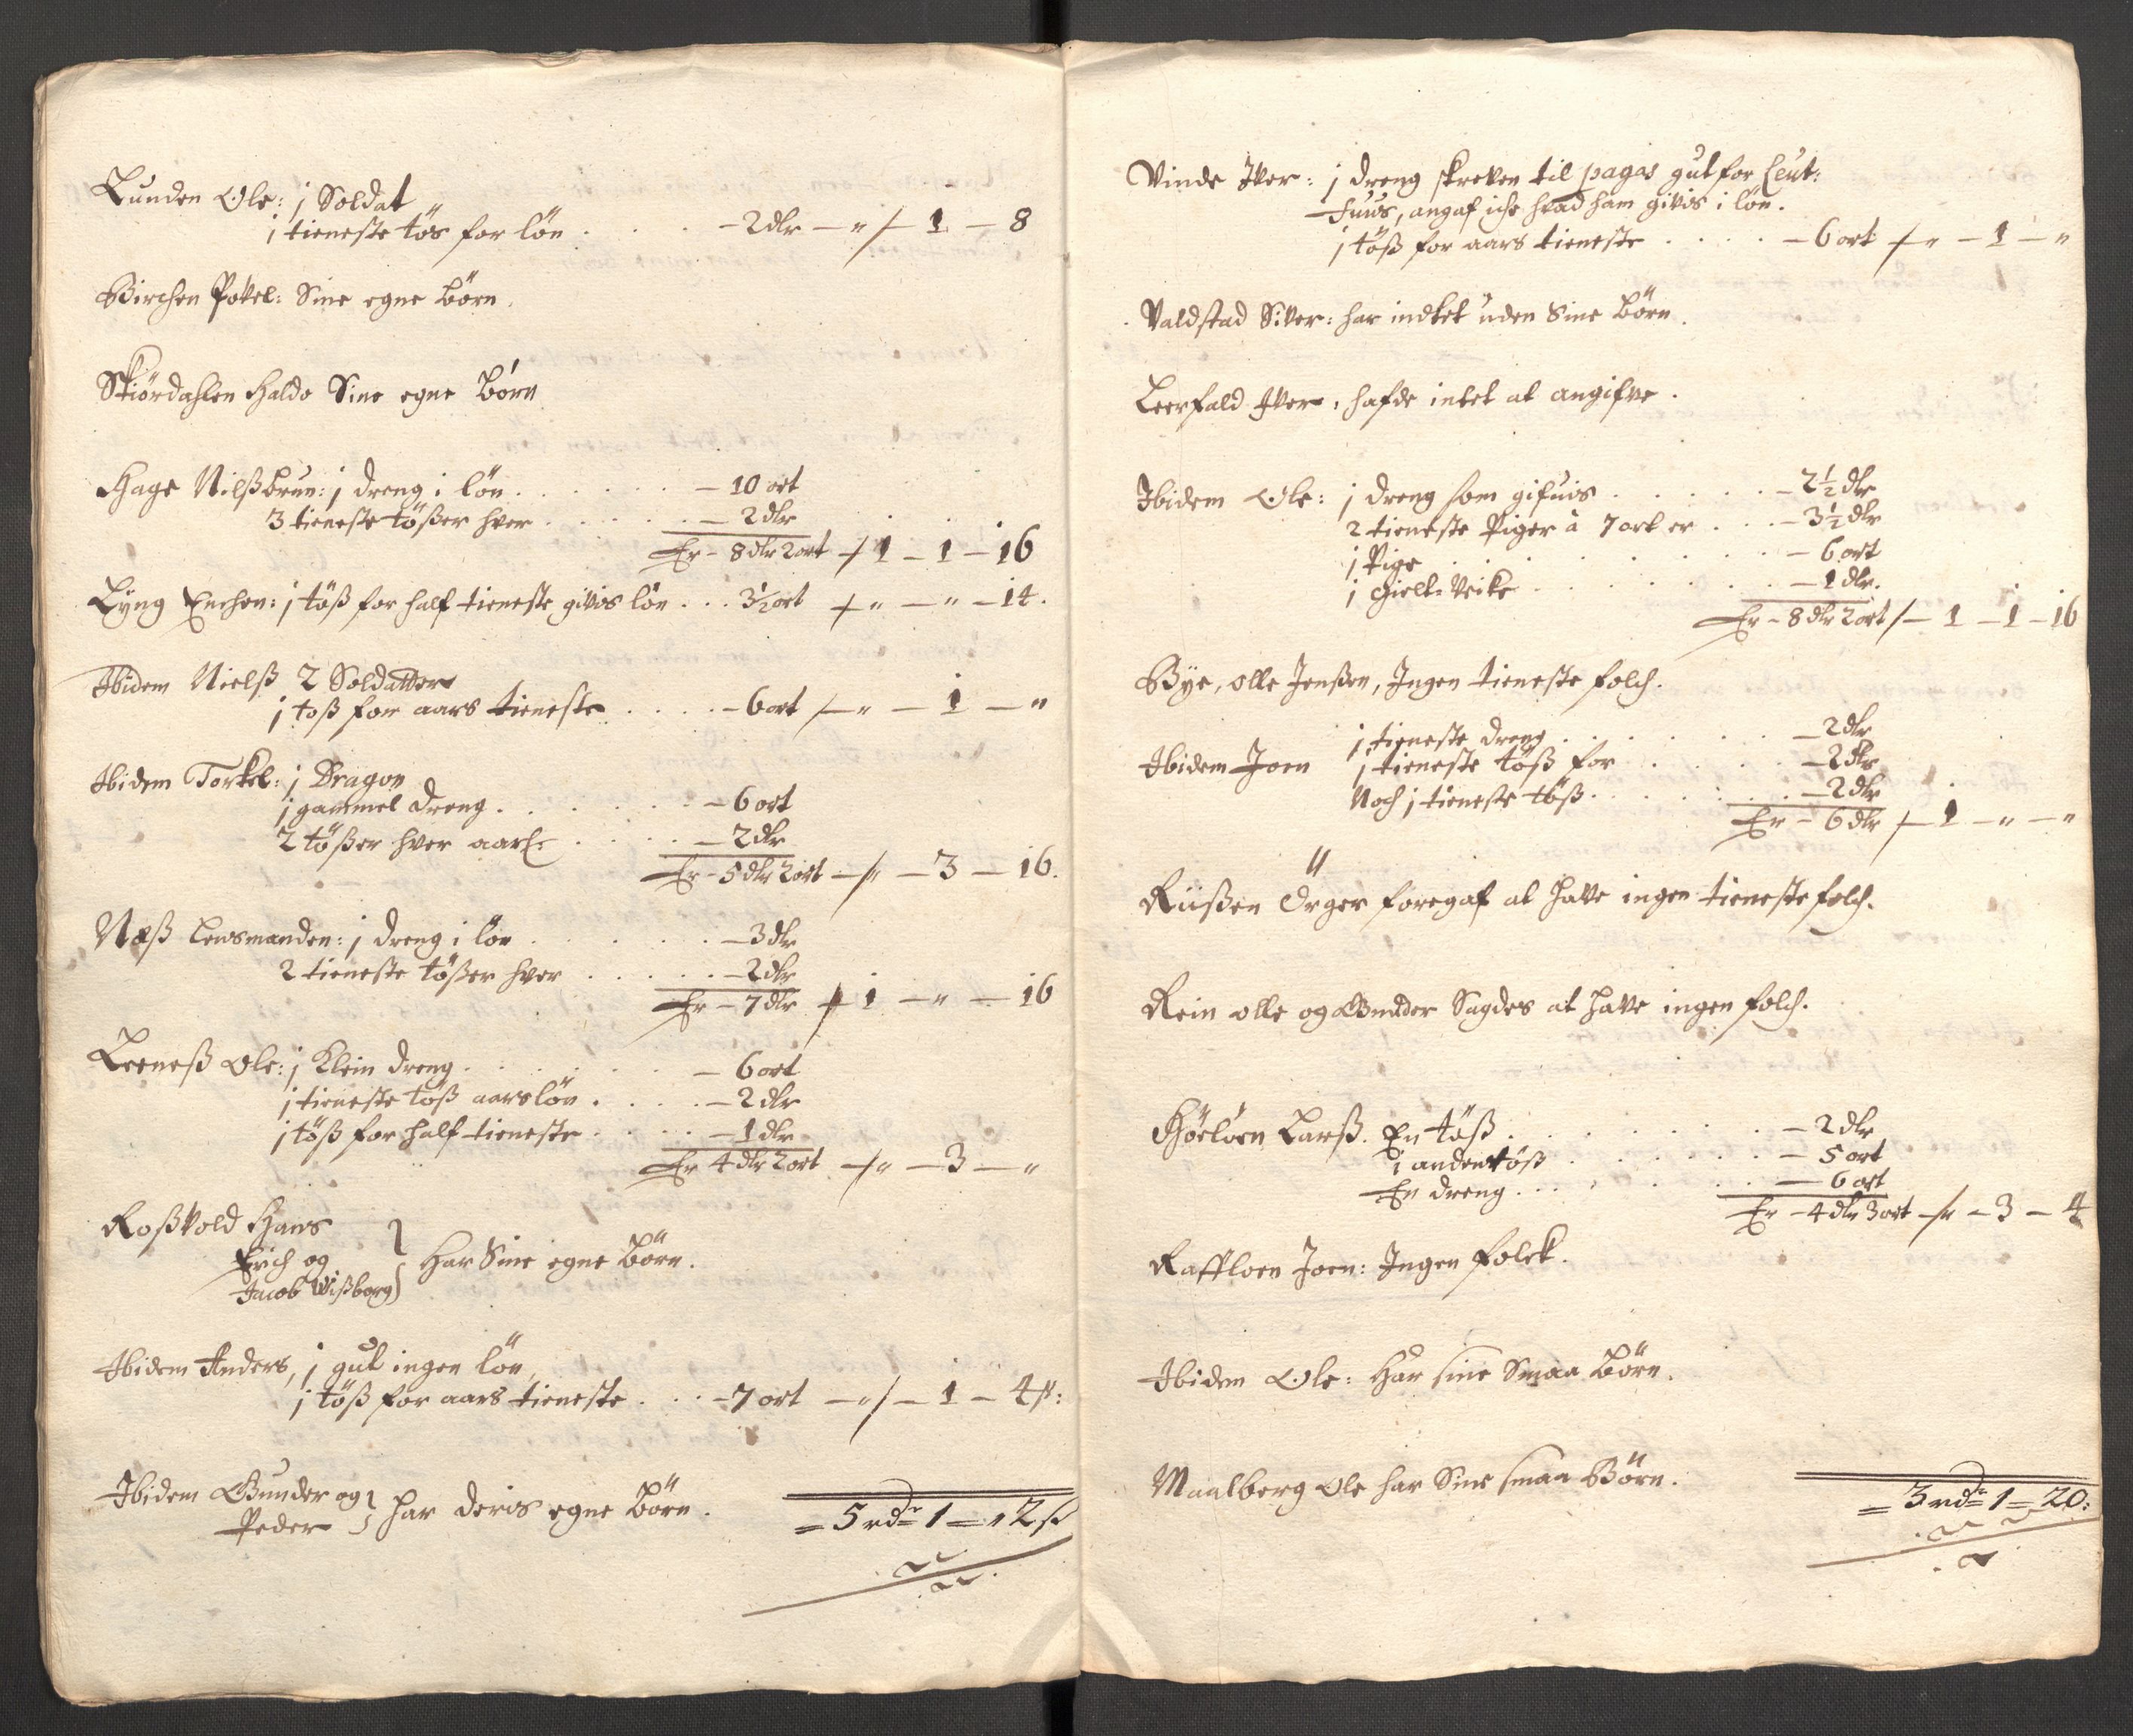 Lunden Ole: j Soldat
i tieneste tös for lön . . . . - 2 dlr - " /- 1 - 8
Birchen Povel: Sine egne Börn.
Skiørdahlen Haldo Sine egne Börn
Hage Nilßbrun: j dreng i lön . . . . . . - 10 ort
3 tieneste tößer hver . . . . . - 2 dlr
Er - 8 dlr 2 ort /- 1 - 1 - 16
Lÿng Enchen: j töß for half tieneste givis lön . . . 3½ ort /- " - " - 14.
Ibidem Nielß 2 Soldatter
j toß for aars tieneste . . . . - 6 ort /- " - 1 - "
Ibidem Torkel: j Dragon
j gammel dreng . . . . . . - 6 ort
2 tößer hver aarl: . . . . - 2 dlr
Er - 5 dlr 2 ort -/" - 3 - 16.
Næß Lensmanden: j dreng i lön . . . . . . - 3 dlr
2 tieneste tößer hver . . . . . - 2 dlr
Er - 7 dlr /- 1 - " - 16
Leeneß Ole: j Klein dreng . . . . . . - 6 ort
j tieneste töß aars lön . . . . . - 2 dlr
j töß for half tieneste . . . . - 1 dlr
Er 4 dlr 2 ort -/" - 3 - "
Roßvold Hans
Erich og } Har Sine egne Börn.
Jacob Wißborg
Ibidem Anders, j gut ingen lön,
j töß for aars tieneste . . . - 7 ort - "/- 1 - 4 ß:
Ibidem Gunder og } har deris egne Börn.
Peder
= 5 rdr 1 = " 2 ß
Vinde Iver: j dreng skreven til pagas gut for Leut:
Juuis, angaf iche hvad ham givis i lön.
j töß for aars tieneste . . . . - 6 ort /- " - 1 - "
Valdstad Siver: har indtet uden Sine Börn.
Leerfald Iver, hafde intet at angifve.
Ibidem Ole: j dreng som gifuis . . . . . - 2½ dlr
2 tieneste Piger à 7 ort er . . . - 3½ dlr
j Pige . . . . . . . . - 6 ort
j gielt-Veike . . . . . . . - 1 dlr.
Er - 8 dlr 2 ort /- 1 - 1 - 16
Bÿe, Olle Jenßen, Ingen tieneste folch.
j tieneste dreng . . . . . . . - 2 dlr
Ibidem Joen j tieneste töß for . . . . . - 2 dlr
Noch j tieneste töß . . . . . . - 2 dlr
Er - 6 dlr /- 1 - " - "
Riißen Örger foregaf at have ingen tieneste folch.
Rein olle og Gunder Sagdes at have ingen folch.
Höeloen Larß. En töß . . . . . . . - 2 dlr
i anden töß . . . . . . - 5 ort
En dreng . . . . . . - 6 ort
Er - 4 dlr 3 ort -/" - 3 - 4
Raffloen Joen: Ingen Folck.
Ibidem Ole: Har sine Smaa Börn.
Maalberg Ole har Sine smaa Börn.
= 3 rdr 1 = 20: